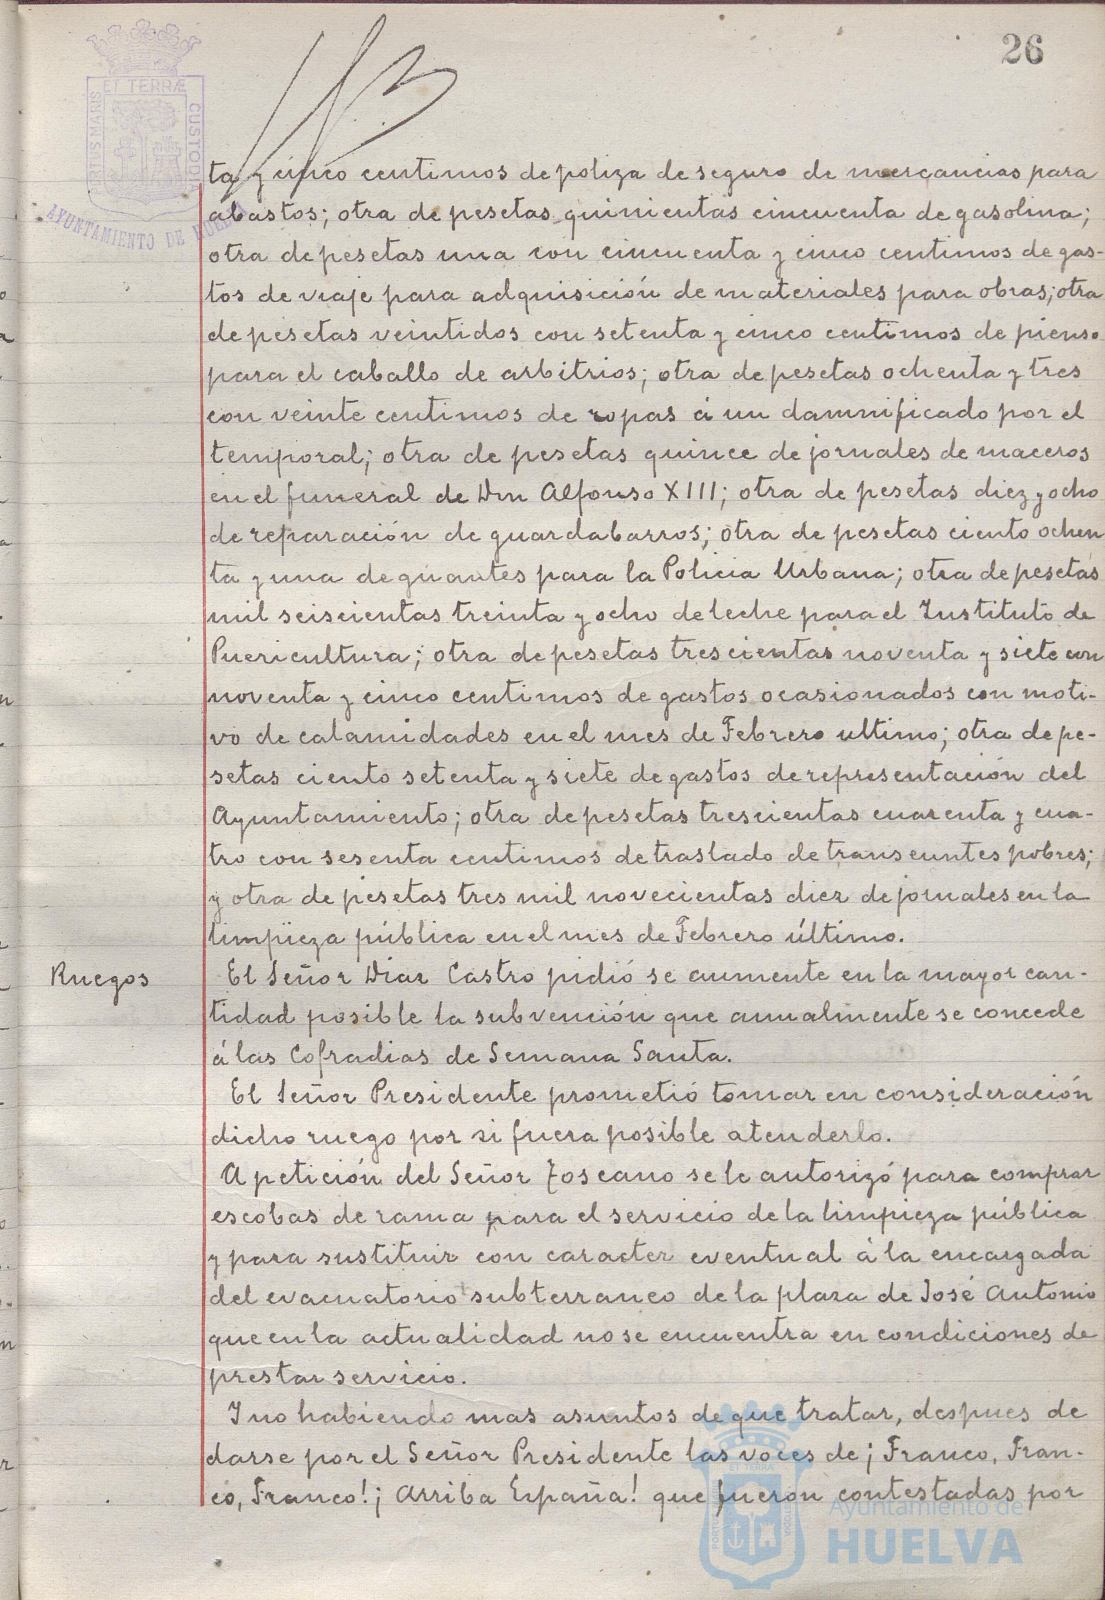 26
PORTUS MARIS ET TERRÆ CUSTODIA
AYUNTAMIENTO DE HUELVA
ta y cinco centimos de poliza de seguro de mercancias para
abastos; otra de pesetas quinientas cincuenta de gasolina;
otra de pesetas una con cincuenta y cinco centimos de gas-
tos de viaje para adquisición de materiales para obras; otra
de pesetas veintidos con setenta y cinco centimos de pienso
para el caballo de arbitrios; otra de pesetas ochenta y tres
con veinte centimos de ropas á un damnificado por el
temporal; otra de pesetas quince de jornales de maceros
en el funeral de Don Alfonso XIII; otra de pesetas diez y ocho
de reparación de guardabarros; otra de pesetas ciento ochen
ta y una de guantes para la Policia Urbana; otra de pesetas
mil seiscientas treinta y ocho de leche para el Instituto de
Puericultura; otra de pesetas trescientas noventa y siete con
noventa y cinco centimos de gastos ocasionados con moti-
vo de calamidades en el mes de Febrero ultimo; otra de pe-
setas ciento setenta y siete de gastos de representación del
Ayuntamiento; otra de pesetas trescientas cuarenta y cua-
tro con sesenta centimos de traslado de transeuntes pobres;
y otra de pesetas tres mil novecientas diez de jornales en la
limpieza pública en el mes de Febrero último.
Ruegos
El Señor Diaz Castro pidió se aumente en la mayor can-
tidad posible la subvención que anualmente se concede
á las Cofradias de Semana Santa.
El Señor Presidente prometió tomar en consideración
dicho ruego por si fuera posible atenderlo.
A petición del Señor Toscano se le autorizó para comprar
escobas de rama para el servicio de la limpieza pública
y para sustituir con caracter eventual á la encargada
del evacuatorio subterraneo de la plaza de José Antonio
que en la actualidad no se encuentra en condiciones de
prestar servicio.
Y no habiendo mas asuntos de que tratar, despues de
darse por el Señor Presidente las voces de ¡Franco, Fran-
co, Franco! ¡Arriba España! que fueron contestadas por
Ayuntamiento de
HUELVA